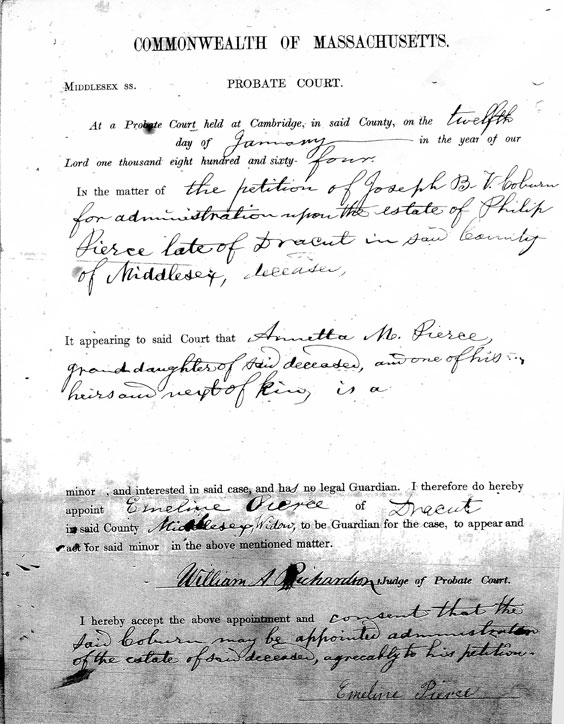 COMMONWEALTH OF MASSACHUSETTS.
MIDDLESEX SS. PROBATE COURT.
At a Probate Court held at Cambridge, in said County, on the twelfth
day of January in the year of our
Lord one thousand eight hundred and sixty-four.
In the matter of the petition of Joseph B. V. Coburn
for administration upon the estate of Philip
Pierce late of Dracut in said County
of Middlesex, deceased,
It appearing to said Court that Annetta M. Pierce,
grand daughter of said deceased, and one of his
heirs and next of kin, is a
minor , and interested in said case, and has no legal Guardian. I therefore do hereby
appoint Emeline Pierce of Dracut
in said County Middlesex, Widow, to be Guardian for the case, to appear and
act for said minor in the above mentioned matter.
William A. Richardson, Judge of Probate Court.
I hereby accept the above appointment and consent that the
said Coburn may be appointed administrator
of the estate of said deceased, agreeably to his petition.
Emeline Pierce